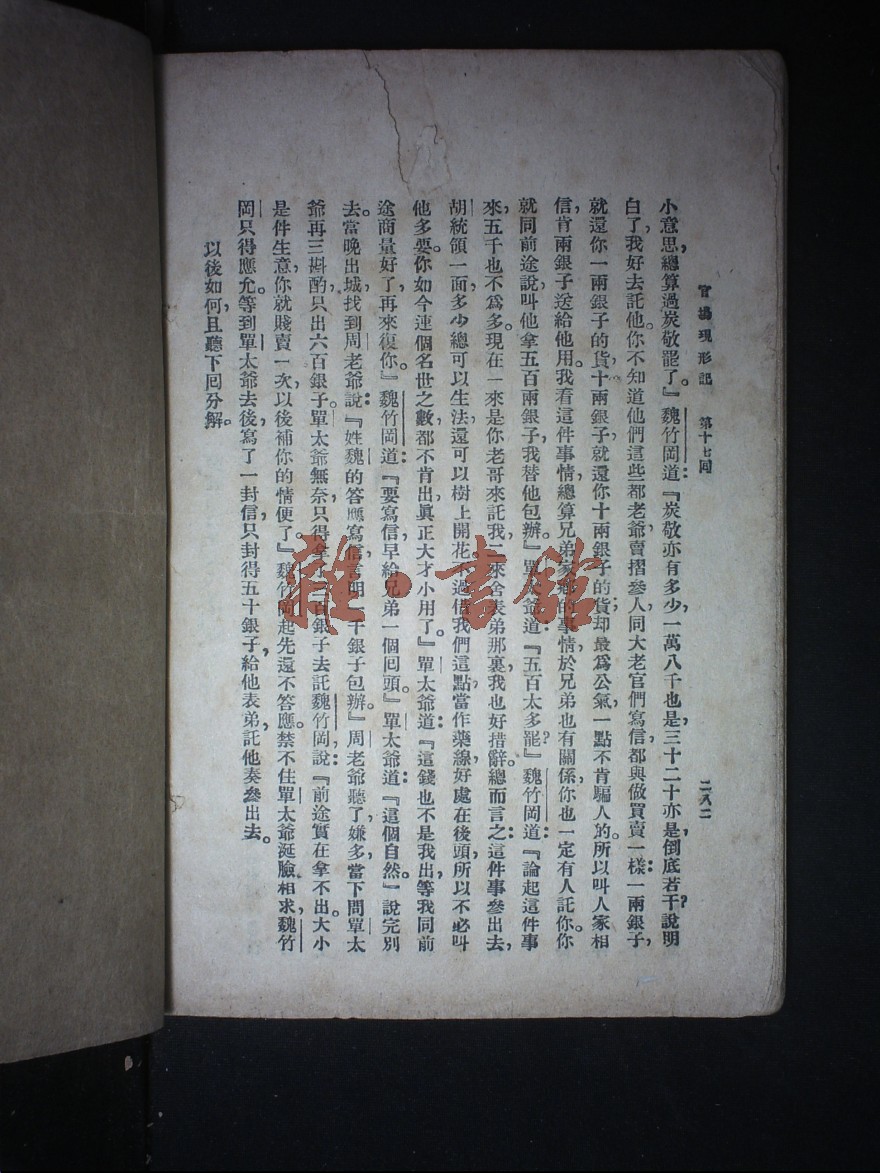 官場現形記 第十七回 二八二
小意思，總算過炭敬罷了。』魏竹岡道：『炭敬亦有多少，一萬八千也是，三十二十亦是，倒底若干？說明
白了，我好去託他。你不知道他們這些都老爺賣摺參人，同大老官們寫信，都與做買賣一樣：一兩銀子，
就還你一兩銀子的貨；十兩銀子，就還你十兩銀子的貨，却最爲公氣，一點不肯騙人的。所以叫人家相
信，肯兩銀子送給他用。我看這件事情，總算兄弟家鄉的事情，於兄弟也有關係，你也一定有人託你。你
就同前途說，叫他拿五百兩銀子，我替他包辦。』單太爺道：『五百太多罷？』魏竹岡道：『論起這件事
來，五千也不爲多。現在一來是你老哥來託我，二來舍表弟那裏，我也好措辭。總而言之：這件事參出去，
胡統領一面，多少總可以生法，還可以樹上開花。不過借我們這點當作藥線，好處在後頭，所以不必叫
他多要。你如今連個名世之數都不肯出，眞正大才小用了。』單太爺道：『這錢也不是我出，等我同前
途商量好了，再來復你。』魏竹岡道：『要寫信，早給兄弟一個囘頭。』單太爺道：『這個自然。』說完別
去。當晚出城，找到周老爺說：『姓魏的答應寫信，言明一千銀子包辦。』周老爺聽了嫌多，當下問單太
爺再三斟酌，只出六百銀子。單太爺無奈，只得拿了三百銀子去託魏竹岡，說：『前途實在拿不出。大小
是件生意，你就賤賣一次，以後補你的情便了。』魏竹岡起先還不答應。禁不住單太爺涎臉相求，魏竹
岡只得應允。等到單太爺去後，寫了一封信，只封得五十銀子，給他表弟，託他奏參出去。
以後如何，且聽下囘分解。
雜·書館